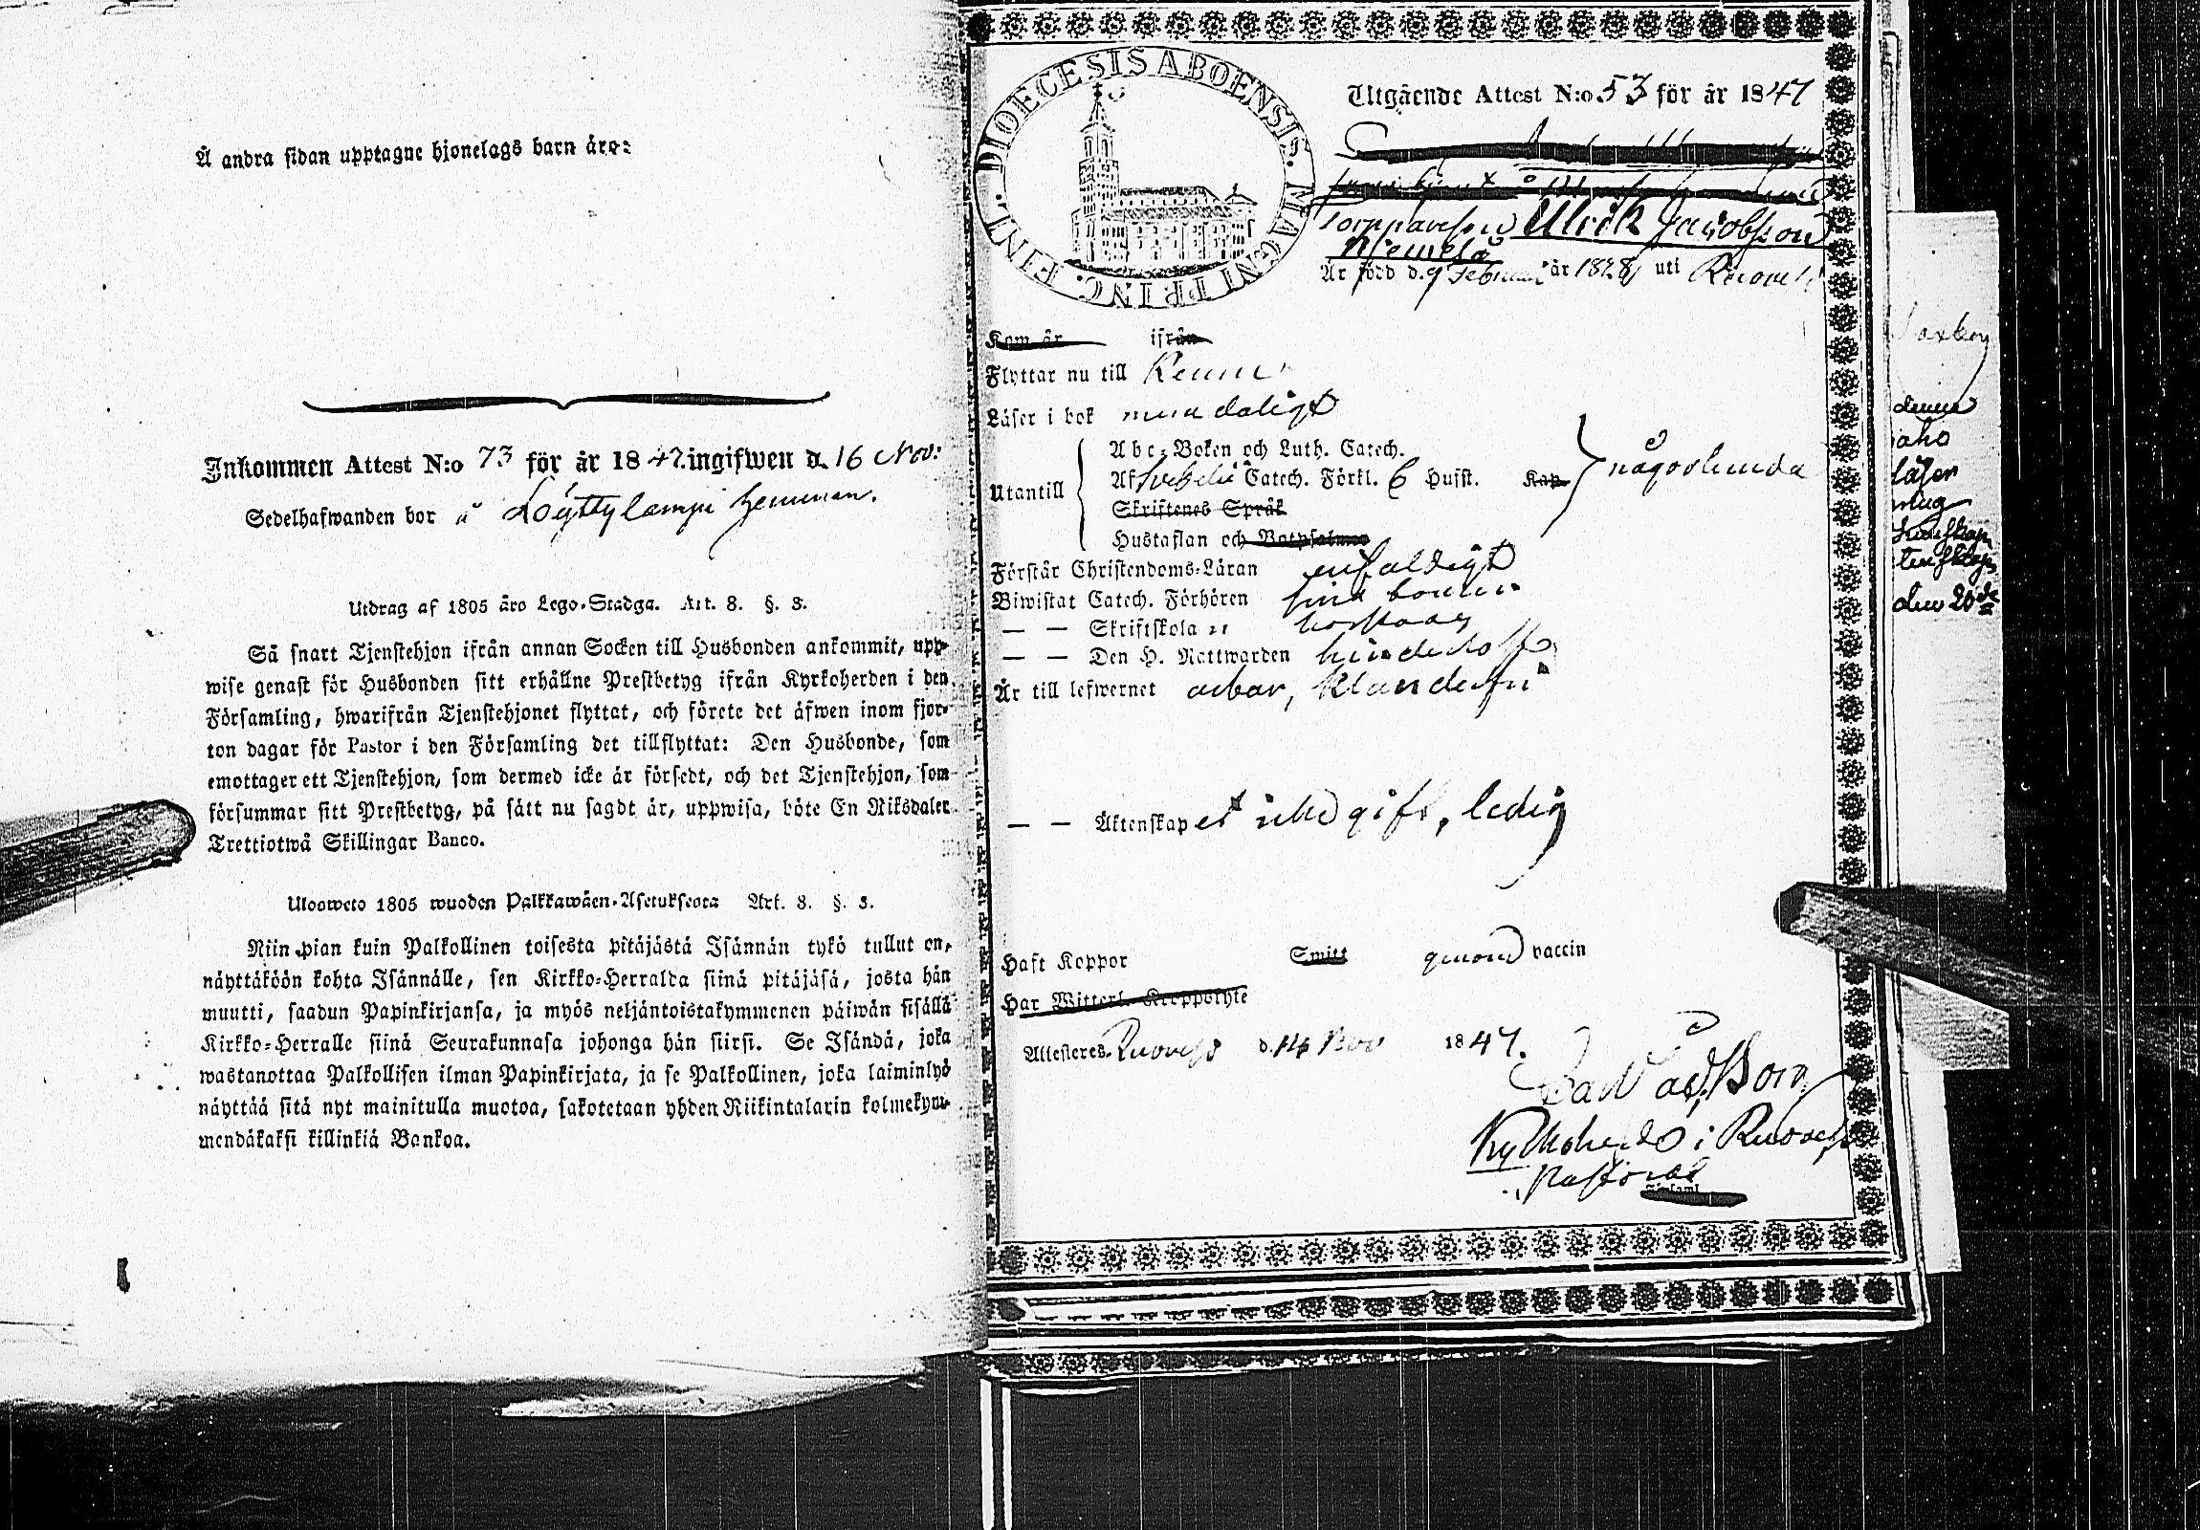 Å andra sidan upptagne hjonelags barn äro:
Inkommen Attest N:o 73 för år 1847 ingifwen d. 16 Nov:
Sedelhafwanden bor å Löyttylampi hemman.
Utdrag af 1805 års Lego-Stadga. Art. 8. §. 3.
Så snart Tjenstehjon ifrån annan Socken till Husbonden ankommit, upp-
wise genast för Husbonden sitt erhållne Prestbetyg ifrån Kyrkoherden i den
Församling, hwarifrån Tjenstehjonet flyttat, och förete det äfwen inom fjor-
ton dagar för Pastor i den Församling det tillflyttat: Den Husbonde, som
emottager ett Tjenstehjon, som dermed icke är försedt, och det Tjenstehjon, som
försummar sitt Prestbetyg, på sätt nu sagdt är, uppwisa, böte En Riksdaler
Trettiotwå Skillingar Banco.
Ulosweto 1805 wuoden Palkkawäen-Asetuksesta Art. 8. §. 3.
Niin pian kuin Palkollinen toisesta pitäjästä Isännän tykö tullut on,
näyttäköön kohta Isännälle, sen Kirkko-Herralda siinä pitäjäsä, josta hän
muutti, saadun Papinkirjansa, ja myös neljäntoistakymmenen päiwän sisällä
Kirkko-Herralle siinä Seurakunnasa johonga hän siirsi. Se Isändä, joka
wastanottaa Palkollisen ilman Papinkirjata, ja se Palkollinen, joka laiminlyö
näyttää sitä nyt mainitulla muotoa, sakotetaan yhden Riikintalarin kolmekym-
mendäkaksi killinkiä Bankoa.
DIOECESIS ABOENSIS. MAGNI PRINC. FINL.
Utgående Attest N:o 53 för år 1847
Torpparesson Ulrik Jacobsson
Niemelä
Är född d. 9 Februari år 1828 uti Ruovesi
Kom år ifrån
Flyttar nu till Keuru
Läser i bok men daligt
Abc-Boken och Luth. Catech.
Utantill Af Svebelii Catech. Förkl. 6 Hufst. Kap. någorlunda
Skriftenes Språk
Hustaflan och Botpsalmer
Förstår Christendoms-Läran enfaldigt
Biwistat Catech. Förhören
— — Skriftskola
— — Den H. Nattwarden
Är till lefwernet ärbar,
— — Äktenskapet icke gift, ledig
Haft Koppor Smitt genom vaccin
Har Witterl. Kroppslyte
Attesteres Ruovesi d. 14 Nov 1847.
Kyrkoherde i Ruovesi
Pastorat
denne
aho
läser
den 20de